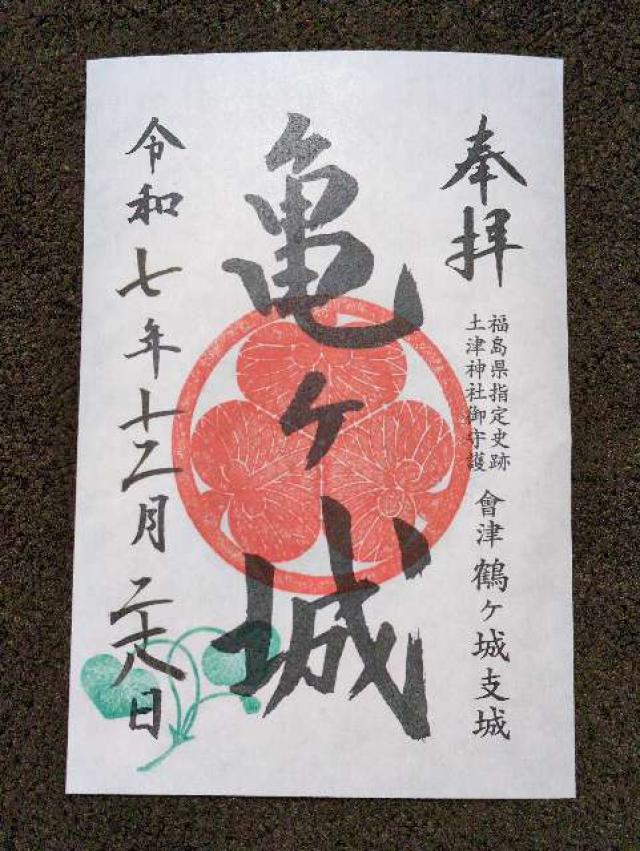 奉拝
福島県指定史跡
土津神社御守護
會津鶴ヶ城支城
亀ヶ城
令和七年十二月二十八日